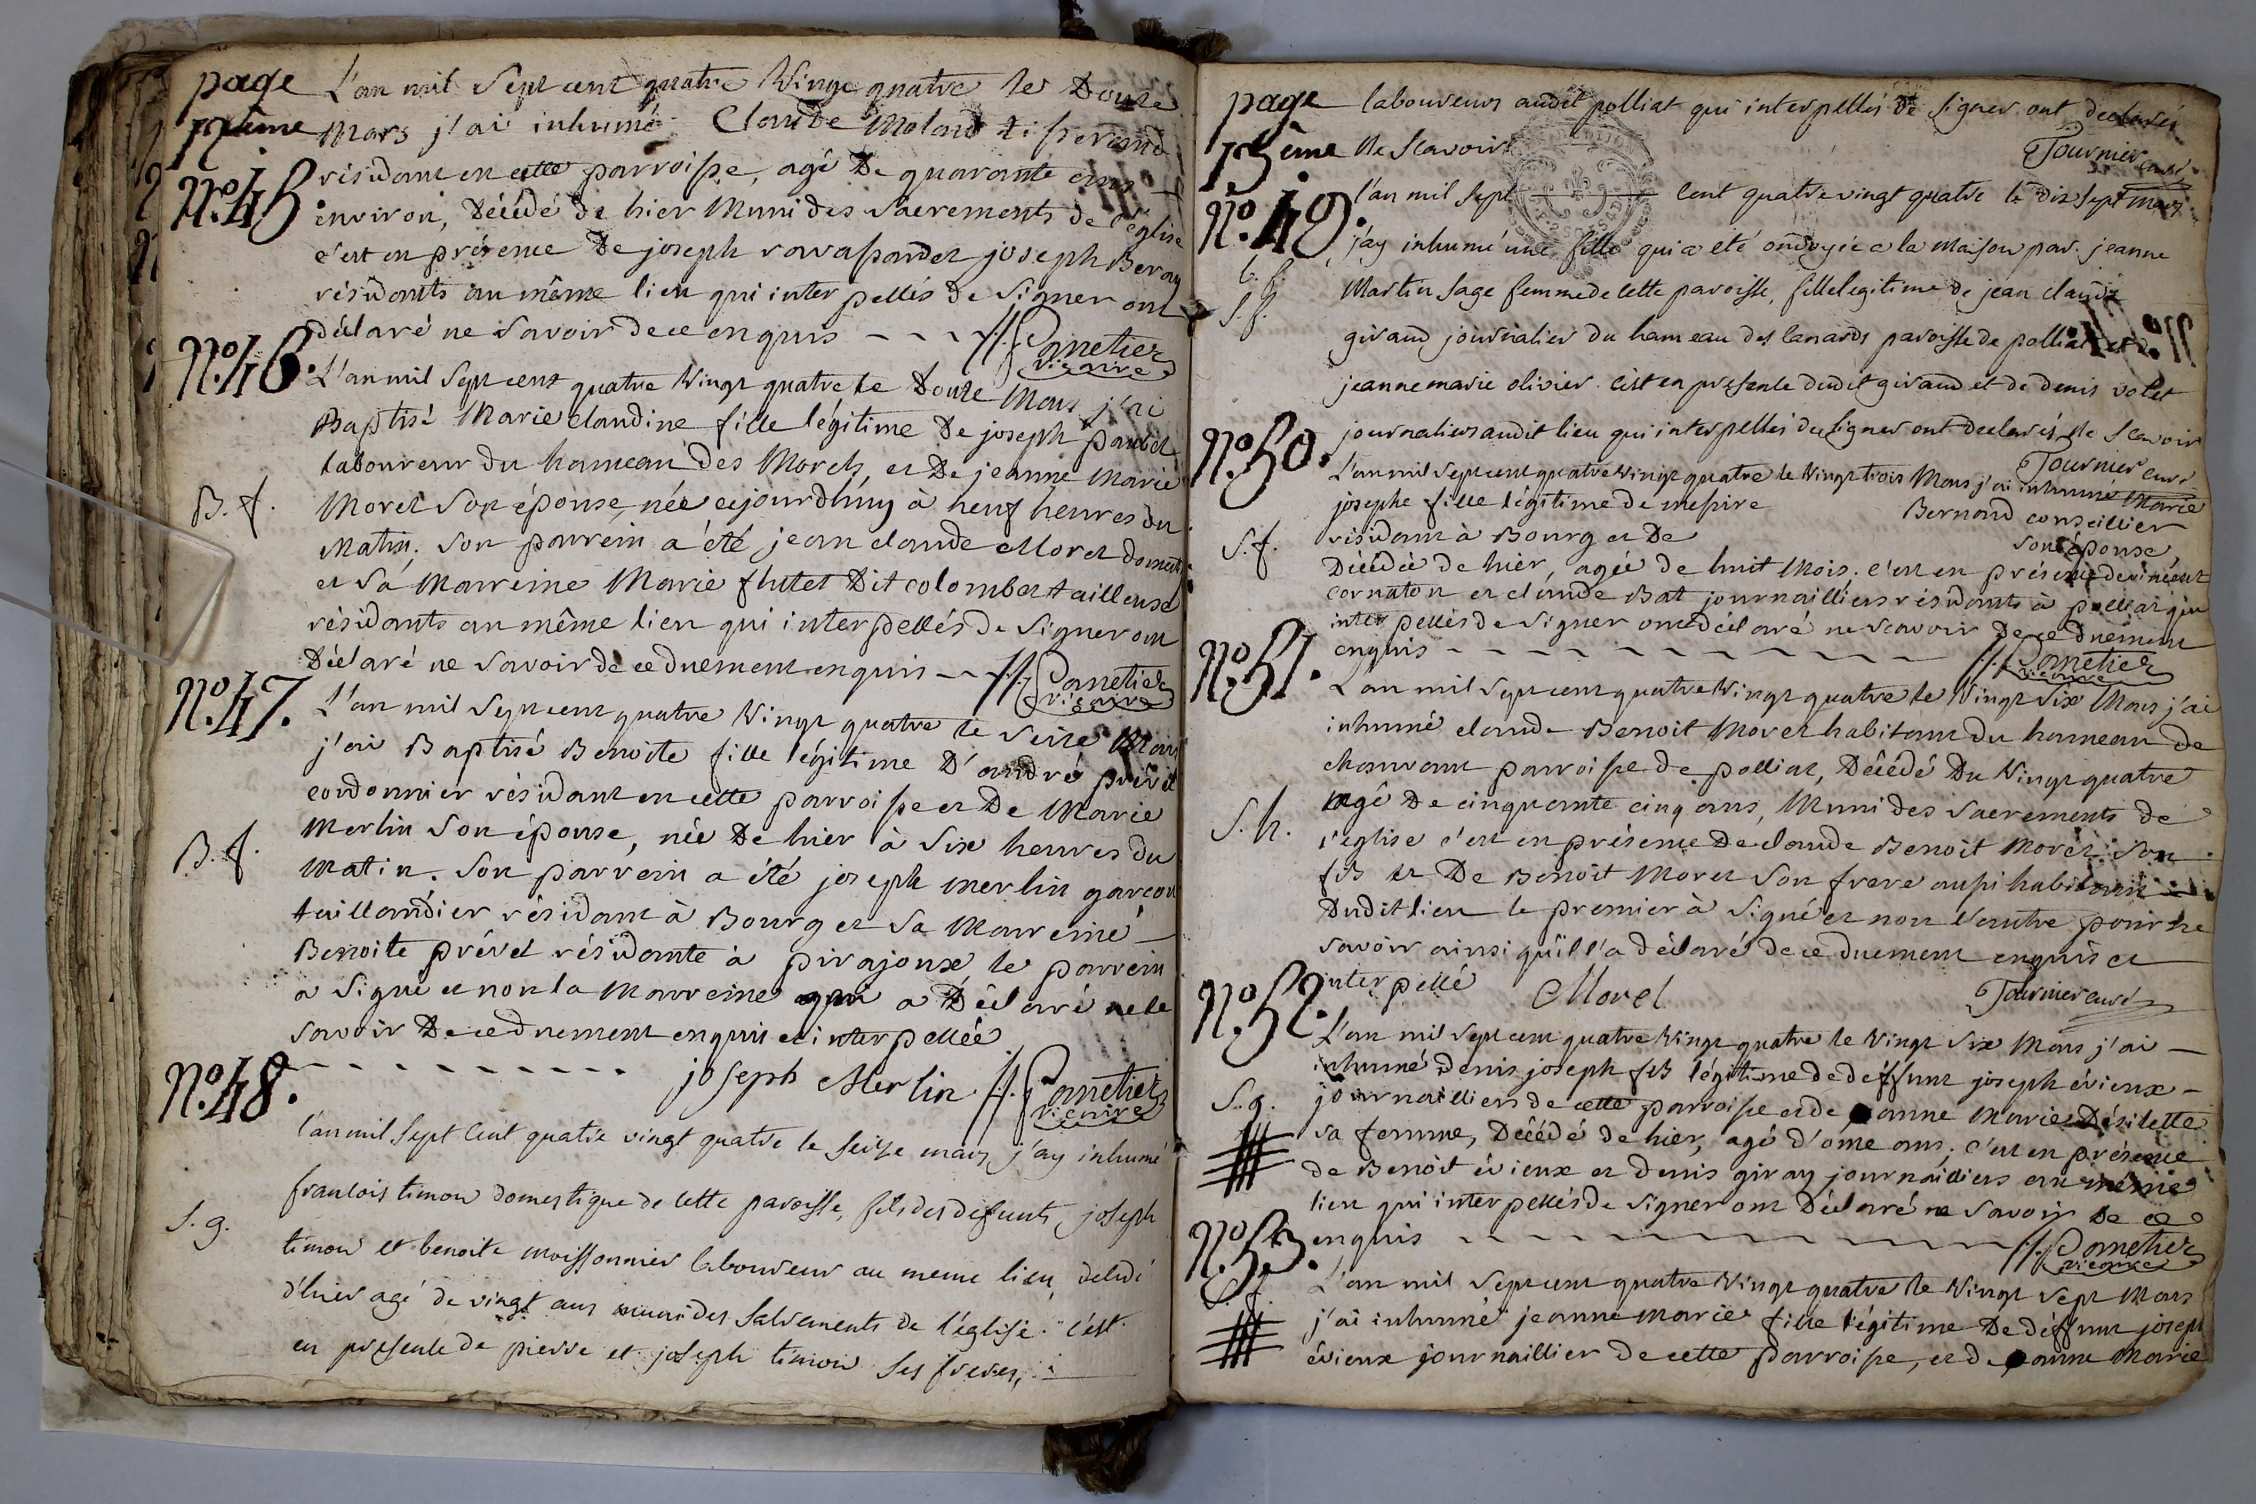 page
L'an mil Sept cent quatre Vingt quatre le Douze
Mars j'ai inhumé Claude Moland
N.° 45.
résidant en cette parroisse, agé De quarante ans
environ, Décédé de hier Muni des Sacrements de l'église
c'est en présence De joseph ravassard et joseph Beray
résidants au même lieu qui interpellés de Signer ont
déclaré ne Savoir de ce enquis
Pametier
vicaire
N.° 46.
L'an mil Sept cent quatre Vingt quatre le Douze Mars j'ai
Baptisé Marie claudine fille légitime De joseph paubel
laboureur du hameau des Morels, et De jeanne Marie
B. f.
Morel Son épouse, née cejourdhuy à neuf heures du
Matin; Son parrein a été jean claude Morel domest
et Sa Marreine Marie flutet Dit colombet tailleuse
résidants au même lieu qui interpellés de Signer ont
Déclaré ne Savoir de ce duement enquis
Pametier
vicaire
N.° 47.
L'an mil Sept cent quatre Vingt quatre le Seize Mars
j'ai Baptisé Benoite fille légitime D'andré prével
cordonnier résidant en cette parroisse et De Marie
Merlin Son épouse, née De hier à Six heures du
B. f.
Matin. Son parrein a été joseph merlin garçon
taillandier résidant à Bourg et Sa Marreine
Benoite prével résidante à pirajoux, le parrein
a Signé et non la Marreine qui a Déclaré ne le
Savoir De ce duement enquis et interpellée
joseph Merlin
Pametier
vicaire
N.° 48.
l'an mil Sept Cent quatre vingt quatre le Seize mars j'ay inhumé
francois timon domestique de Cette paroisse, fils des defunts joseph
S. g.
timon et benoite moissonnier laboureur au meme lieu, decedé
d'hier agé de vingt ans muni des Sacrements de l'église. C'est
en presence de pierre et joseph timon Ses freres,
page
15ème
laboureurs audit polliat qui interpellés de Signer ont declarés
Ne Scavoir
Tournier curé
N.° 49.
l'an mil Sept Cent quatre vingt quatre le dix Sept mars
j'ay inhumé une fille qui a eté ondoyée a la maison par jeanne
S. f.
Martin Sage femme de Cette paroisse, fille legitime de jean claude
giraud journalier du hameau des Canards paroisse de polliat et de
jeanne marie olivier. C'est en presence dudit giraud et de denis volet
journaliers audit lieu qui interpellés de Signer ont declarés Ne Scavoir
Tournier curé
N.° 50.
L'an mil Sept cent quatre Vingt quatre le Vingt trois Mars j'ai inhumé Marie
josephe fille légitime de messire Bernard conseillier
S. f.
résidant à Bourg et De son épouse
Décédée de hier, agée de huit Mois. c'est en présence de vincent
cornaton et claude Bat journailliers résidants à polliat qui
interpellés de Signer ont déclaré ne Scavoir De ce duement
enquis
Pametier
vicaire
N.° 51.
L'an mil Sept cent quatre Vingt quatre le Vingt Six Mars j'ai
inhumé claude Benoit Morel habitant du hameau de
chanvant parroisse de polliat, Décédé Du Vingt quatre
S. h.
agé De cinquante cinq ans, Muni des Sacrements de
l'église c'est en présence De claude Benoit Morel Son
fils et De Benoit Morel Son frere aussi habitants
Dudit lieu le premier à Signé et non l'autre pour ne
Savoir ainsi qu'il l'a déclaré de ce duement enquis et
interpellé
Morel
Tournier curé
N.° 52.
L'an mil Sept cent quatre Vingt quatre le Vingt Six Mars j'ai
inhumé Denis joseph fils légitime de deffunt joseph évieux
S. g.
journaillier de cette parroisse et de jeanne Marie Désilette
Sa femme, Décédé de hier, agé d'onze ans. c'est en présence
de Benoit évieux et denis giray journailliers au même
lieu qui interpellés de Signer ont Déclaré ne Savoir De ce
enquis
Pametier
vicaire
N.° 53.
S. f.
L'an mil Sept cent quatre Vingt quatre le Vingt Sept Mars
j'ai inhumé jeanne Marie fille légitime De deffunt joseph
évieux journaillier de cette parroisse, et de jeanne Marie